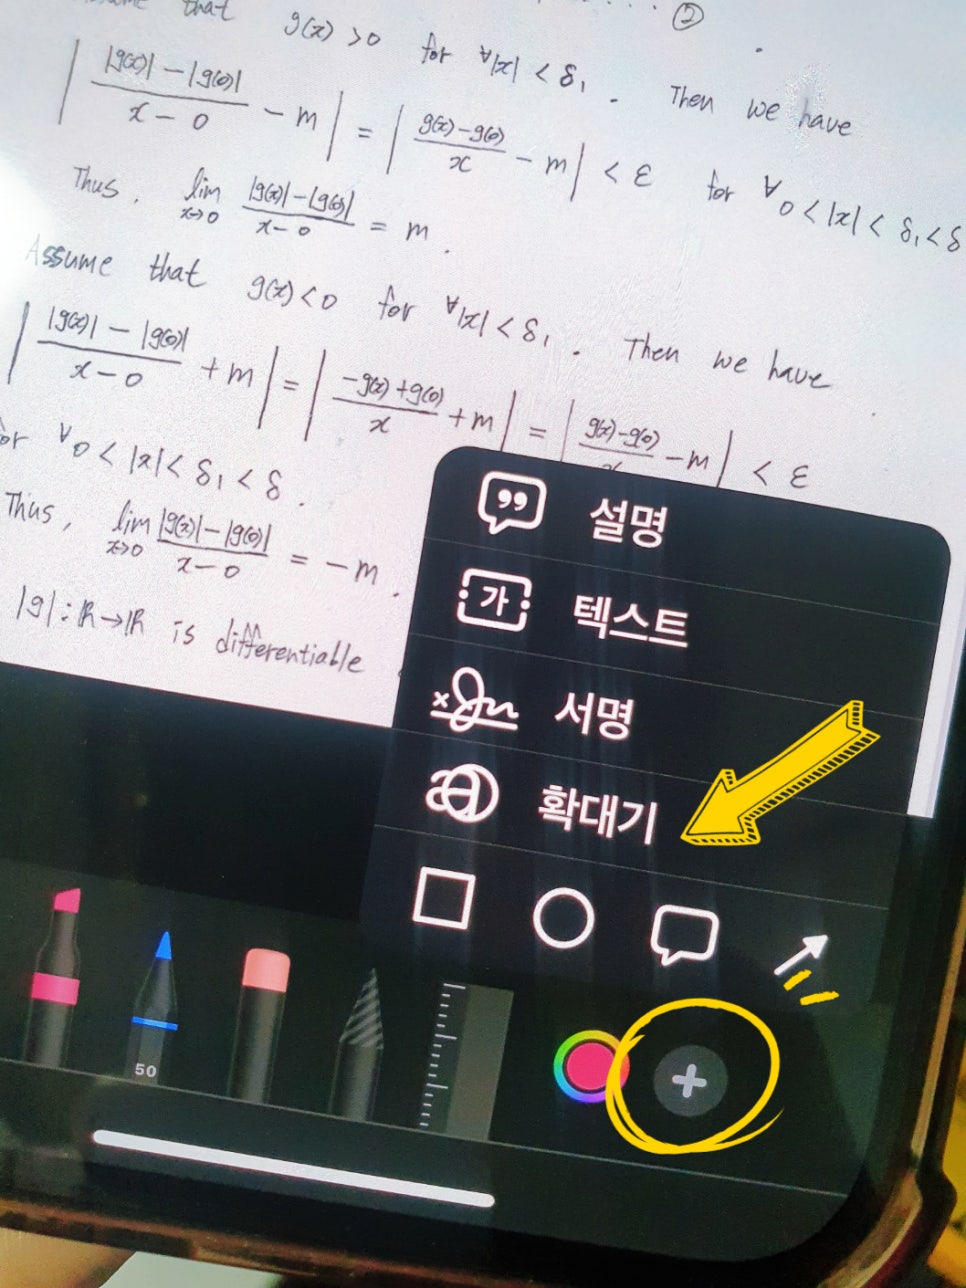 that g(x) > 0 for ∀|x| < δ₁. Then we have
②
| (|g(x)| - |g(0)|)/(x - 0) - m | = | (g(x) - g(0))/x - m | < ε for ∀0 < |x| < δ₁ < δ
Thus, lim x→0 (|g(x)| - |g(0)|)/(x - 0) = m.
Assume that g(x) < 0 for ∀|x| < δ₁. Then we have
| (|g(x)| - |g(0)|)/(x - 0) + m | = | (-g(x) + g(0))/x + m | = | (g(x) - g(0))/x - m | < ε
for ∀0 < |x| < δ₁ < δ.
Thus, lim x→0 (|g(x)| - |g(0)|)/(x - 0) = -m.
|g| : ℝ → ℝ is differentiable
설명
가 텍스트
서명
확대기
50